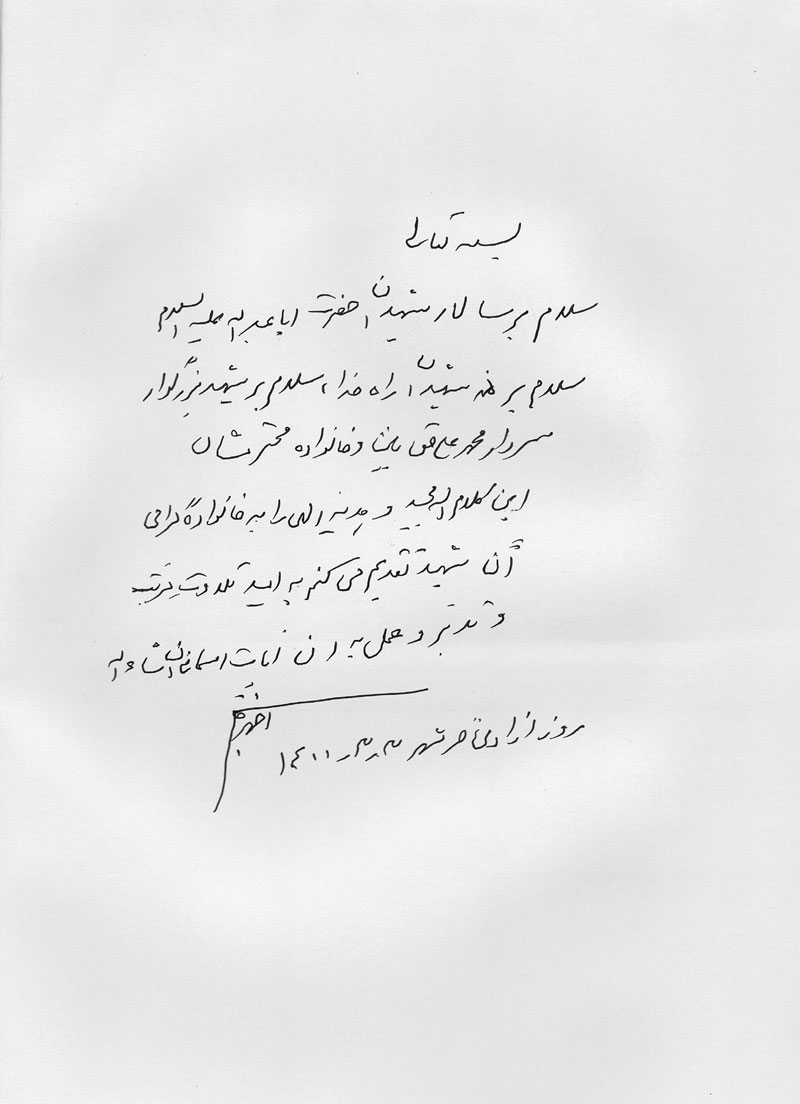 بسمه تعالی
سلام بر سالار شهیدان حضرت اباعبداله علیه السلام
سلام بر همه شهیدان راه خدا، سلام بر شهید بزرگوار
سردار محمد علی حق بین و خانواده محترمشان
این کلام اله مجید و هدیه الهی را به خانواده گرامی
آن شهید تقدیم می کنم به امید تلاوت مرتب
و تدبر و عمل به آن آیات آسمانی انشاءاله
روز آزادی خرمشهر ۱۴۰۰ر۳ر۳